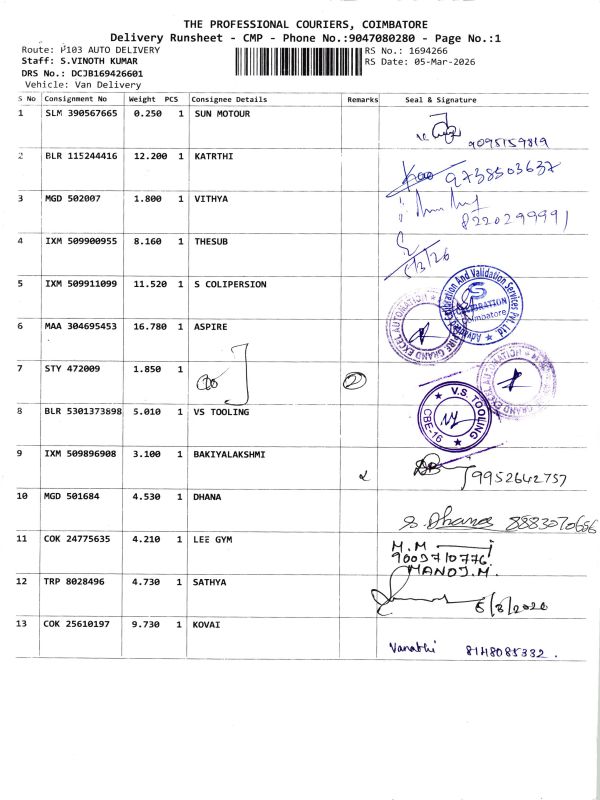 THE PROFESSIONAL COURIERS, COIMBATORE
Delivery Runsheet - CMP - Phone No.:9047080280 - Page No.:1
Route: P103 AUTO DELIVERY
RS No.: 1694266
Staff: S.VINOTH KUMAR
RS Date: 05-Mar-2026
DRS No.: DCJB169426601
Vehicle: Van Delivery
S No Consignment No Weight PCS Consignee Details Remarks Seal & Signature
1 SLM 390567665 0.250 1 SUN MOTOUR
9095159819
2 BLR 115244416 12.200 1 KATRTHI
9738503637
3 MGD 502007 1.800 1 VITHYA
8220299991
4 IXM 509900955 8.160 1 THESUB
5/3/26
5 IXM 509911099 11.520 1 S COLIPERSION
6 MAA 304695453 16.780 1 ASPIRE
7 STY 472009 1.850 1
2
8 BLR 5301373898 5.010 1 VS TOOLING
V.S. TOOLING
CBE-16
9 IXM 509896908 3.100 1 BAKIYALAKSHMI
9952642757
10 MGD 501684 4.530 1 DHANA
S. Dhana 8883070686
11 COK 24775635 4.210 1 LEE GYM
M.M
9003710776
MANOJ.M.
12 TRP 8028496 4.730 1 SATHYA
5/3/2026
13 COK 25610197 9.730 1 KOVAI
Vanathi 8148085332.